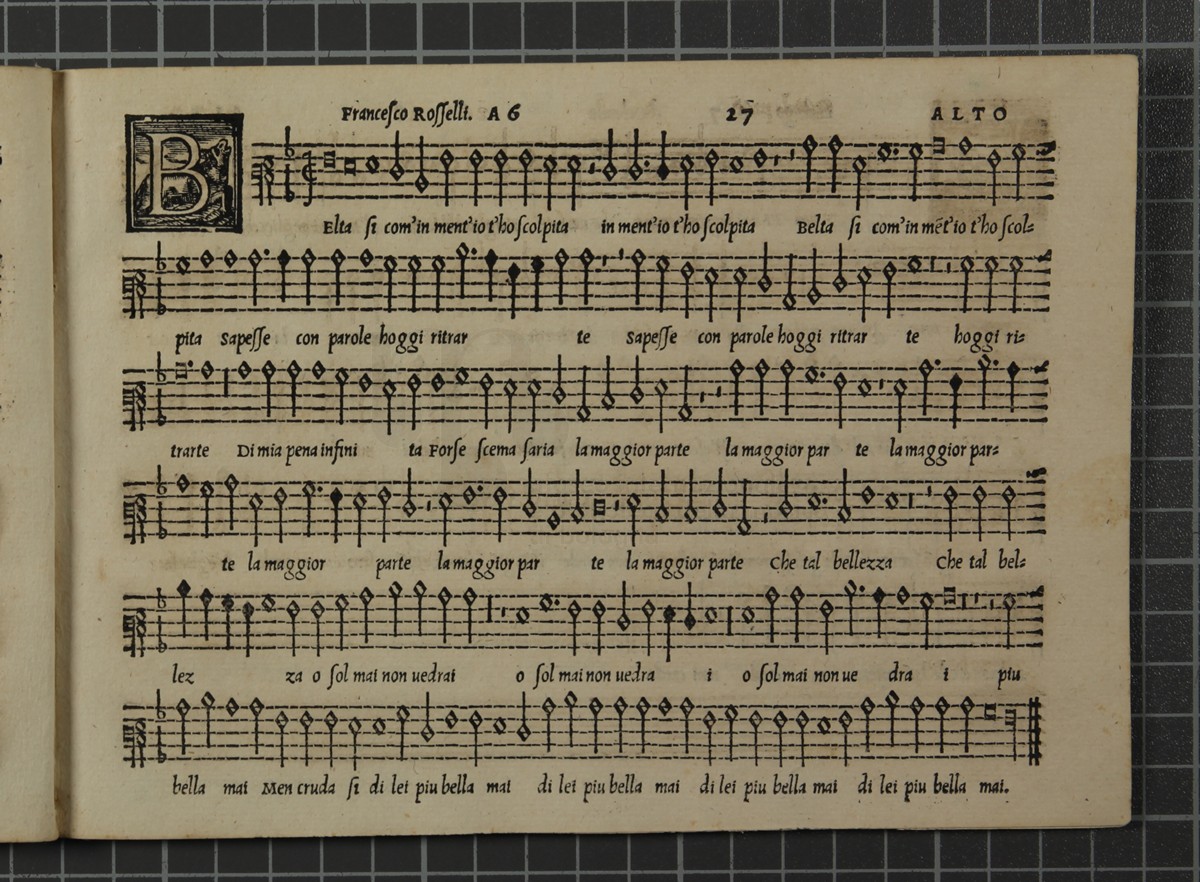 Franceſco Roſſelli. A 6 27 ALTO
BElta ſi com'in ment'io t'ho ſcolpita in ment'io t'ho ſcolpita Belta ſi com'in mēt'io t'ho ſcol=
pita Sapeſſe con parole hoggi ritrar te Sapeſſe con parole hoggi ritrar te hoggi ri=
trarte Di mia pena infini ta Forſe ſcema ſaria la maggior parte la maggior par te la maggior par=
te la maggior parte la maggior par te la maggior parte Che tal bellezza Che tal bel=
lez za o ſol mai non uedrai o ſol mai non uedra i o ſol mai non ue dra i piu
bella mai Men cruda ſi di lei piu bella mai di lei piu bella mai di lei piu bella mai di lei piu bella mai.